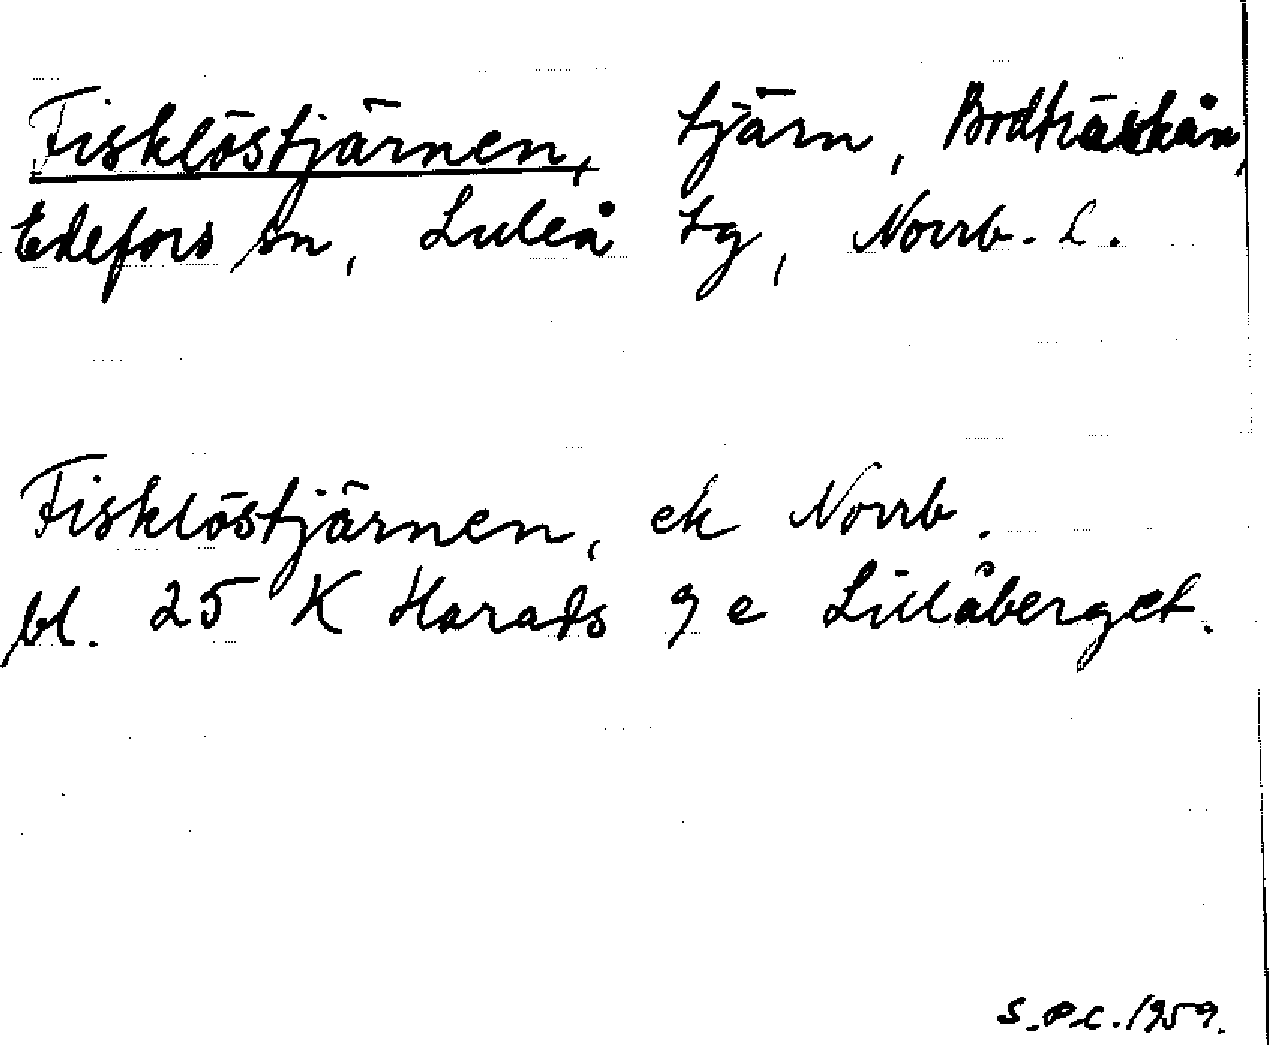 Fisklöstjärnen, tjärn, Bodträskån,
Edefors sn, Luleå tg, Norrb. l.
Fisklöstjärnen, ek Norrb.
bl. 25 K Harads 9 e Lillåberget.
S.P.C. 1959.